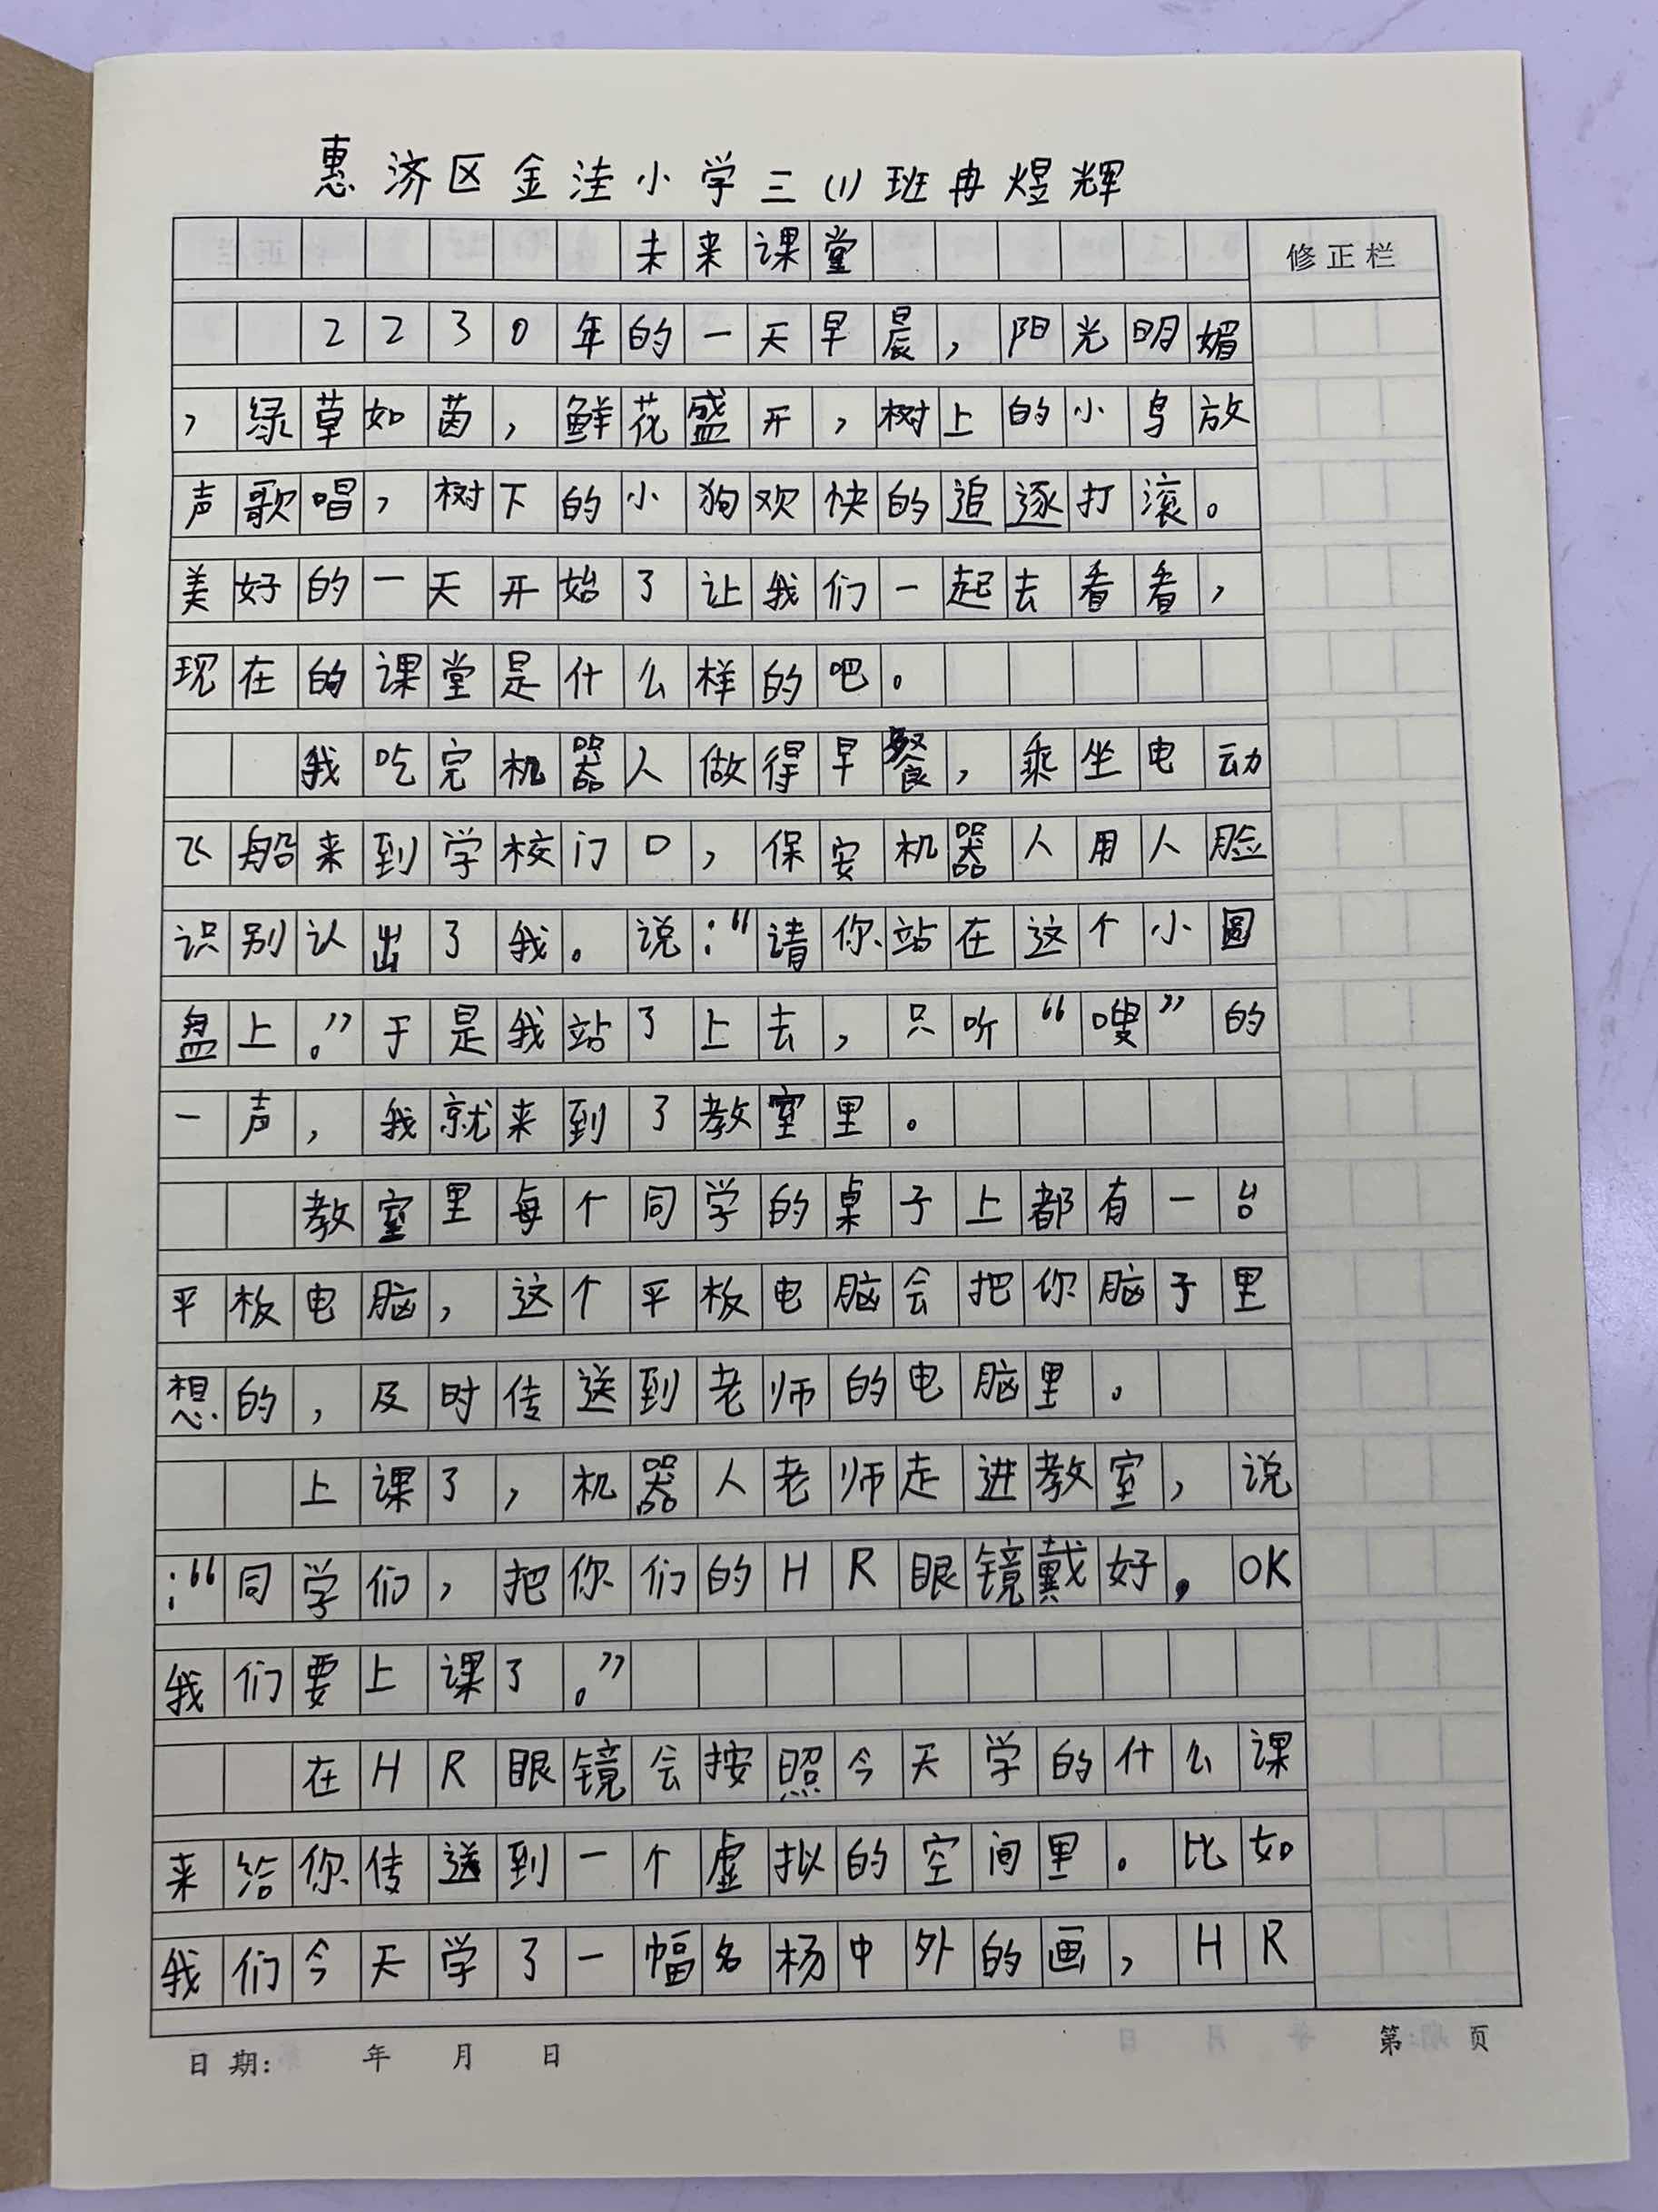 惠济区金洼小学三(1)班冉煜辉
未来课堂
修正栏
2230年的一天早晨，阳光明媚
，绿草如茵，鲜花盛开，树上的小鸟放
声歌唱，树下的小狗欢快的追逐打滚。
美好的一天开始了让我们一起去看看，
现在的课堂是什么样的吧。
我吃完机器人做得早餐，乘坐电动
飞船来到学校门口，保安机器人用人脸
识别认出了我。说：“请你站在这个小圆
盘上。”于是我站了上去，只听“嗖”的
一声，我就来到了教室里。
教室里每个同学的桌子上都有一台
平板电脑，这个平板电脑会把你脑子里
想的，及时传送到老师的电脑里。
上课了，机器人老师走进教室，说
：“同学们，把你们的HR眼镜戴好。OK
我们要上课了。”
在HR眼镜会按照今天学的什么课
来给你传送到一个虚拟的空间里。比如
我们今天学了一幅名杨中外的画，HR
日期： 年 月 日
第 页